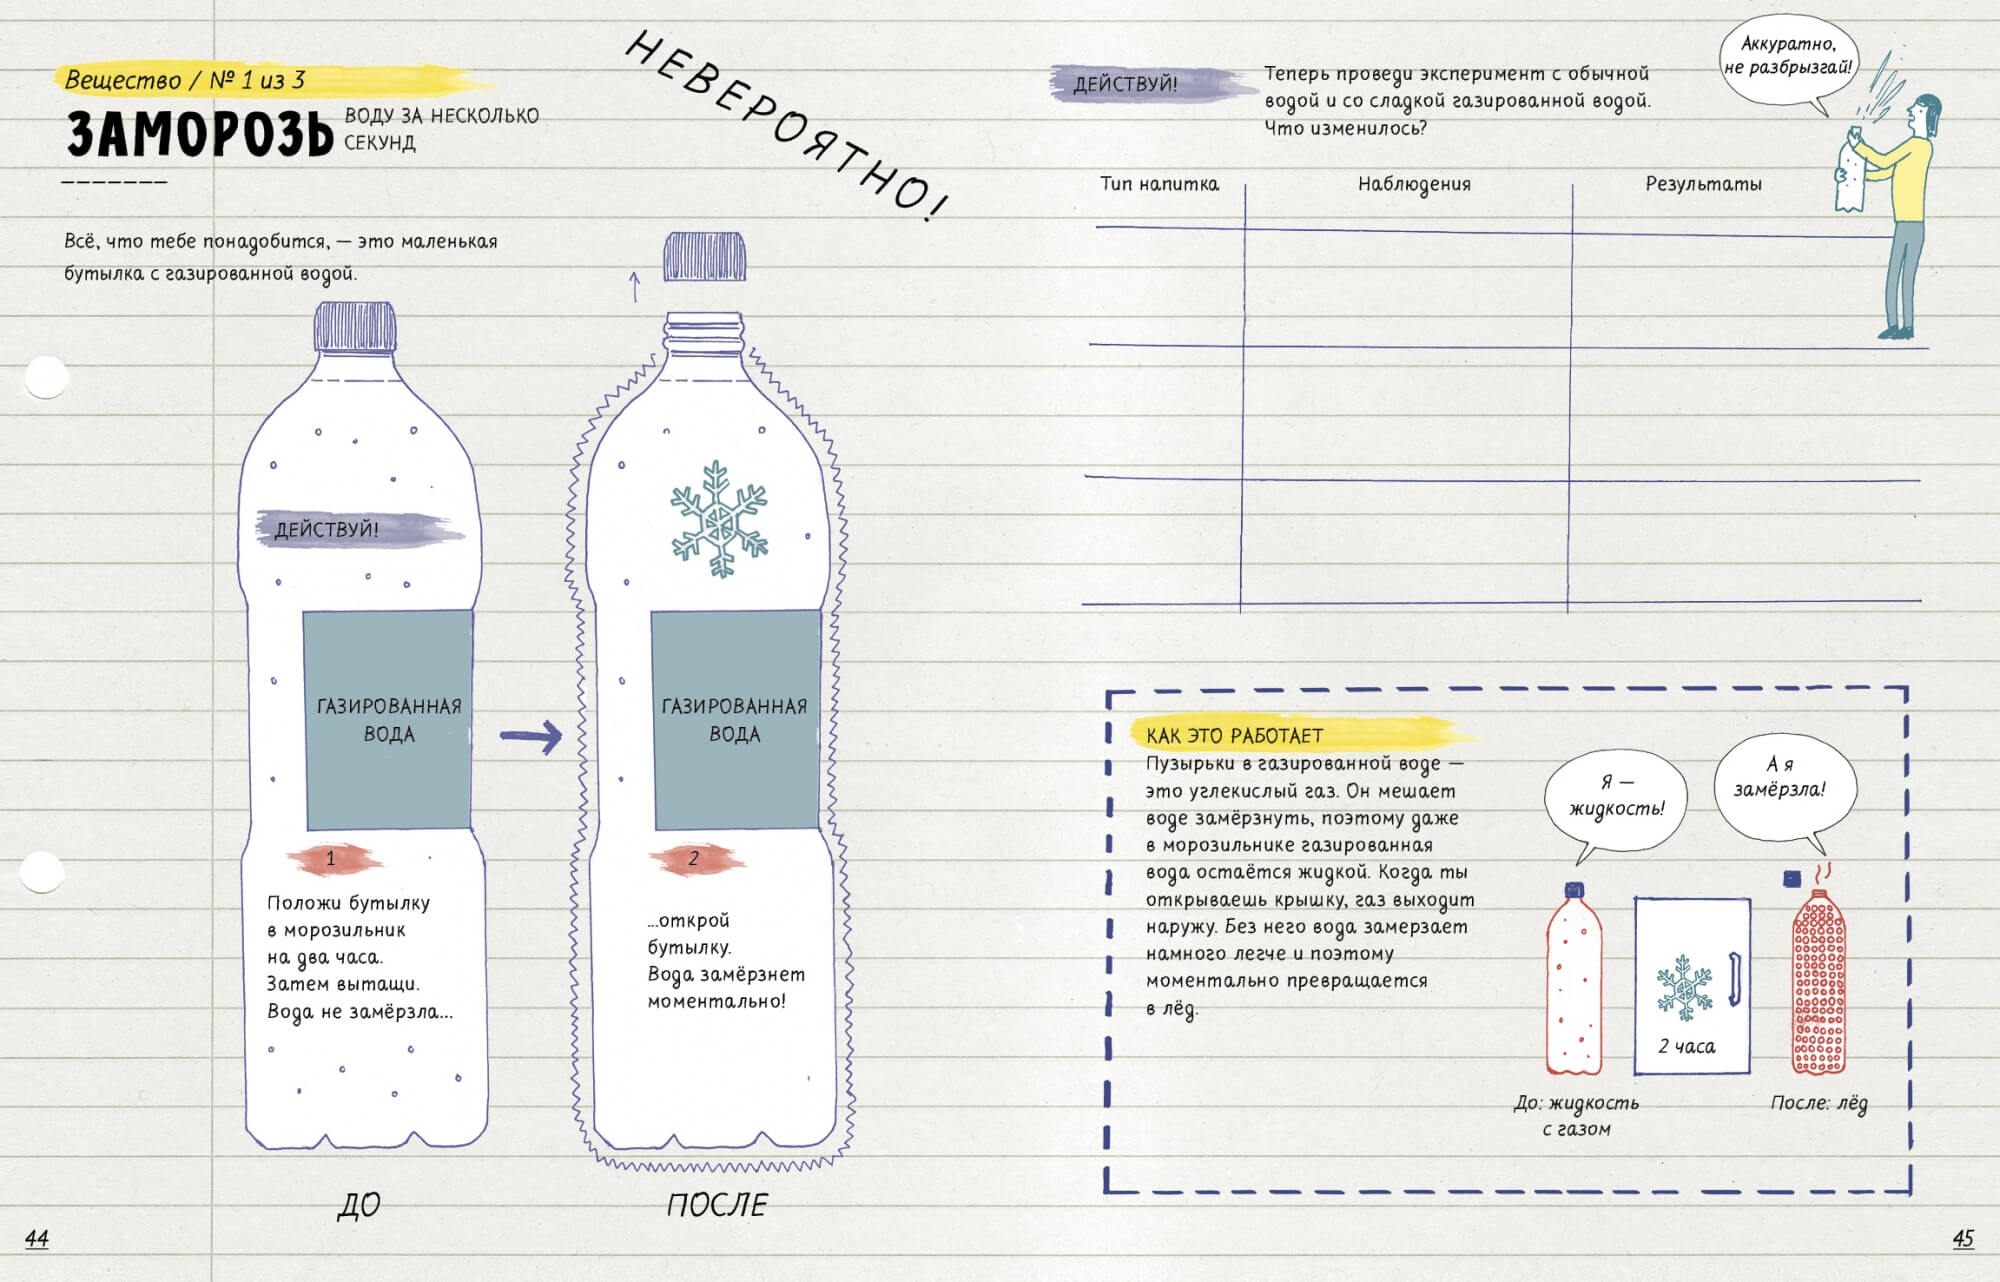 Вещество / № 1 из 3
ЗАМОРОЗЬ ВОДУ ЗА НЕСКОЛЬКО
СЕКУНД
НЕВЕРОЯТНО!
Всё, что тебе понадобится, — это маленькая
бутылка с газированной водой.
ДЕЙСТВУЙ!
ГАЗИРОВАННАЯ
ВОДА
1
Положи бутылку
в морозильник
на два часа.
Затем вытащи.
Вода не замёрзла...
ДО
ГАЗИРОВАННАЯ
ВОДА
2
...открой
бутылку.
Вода замёрзнет
моментально!
ПОСЛЕ
44
ДЕЙСТВУЙ!
Теперь проведи эксперимент с обычной
водой и со сладкой газированной водой.
Что изменилось?
Аккуратно,
не разбрызгай!
Тип напитка Наблюдения Результаты
КАК ЭТО РАБОТАЕТ
Пузырьки в газированной воде —
это углекислый газ. Он мешает
воде замёрзнуть, поэтому даже
в морозильнике газированная
вода остаётся жидкой. Когда ты
открываешь крышку, газ выходит
наружу. Без него вода замерзает
намного легче и поэтому
моментально превращается
в лёд.
Я —
жидкость!
А я
замёрзла!
2 часа
До: жидкость
с газом
После: лёд
45